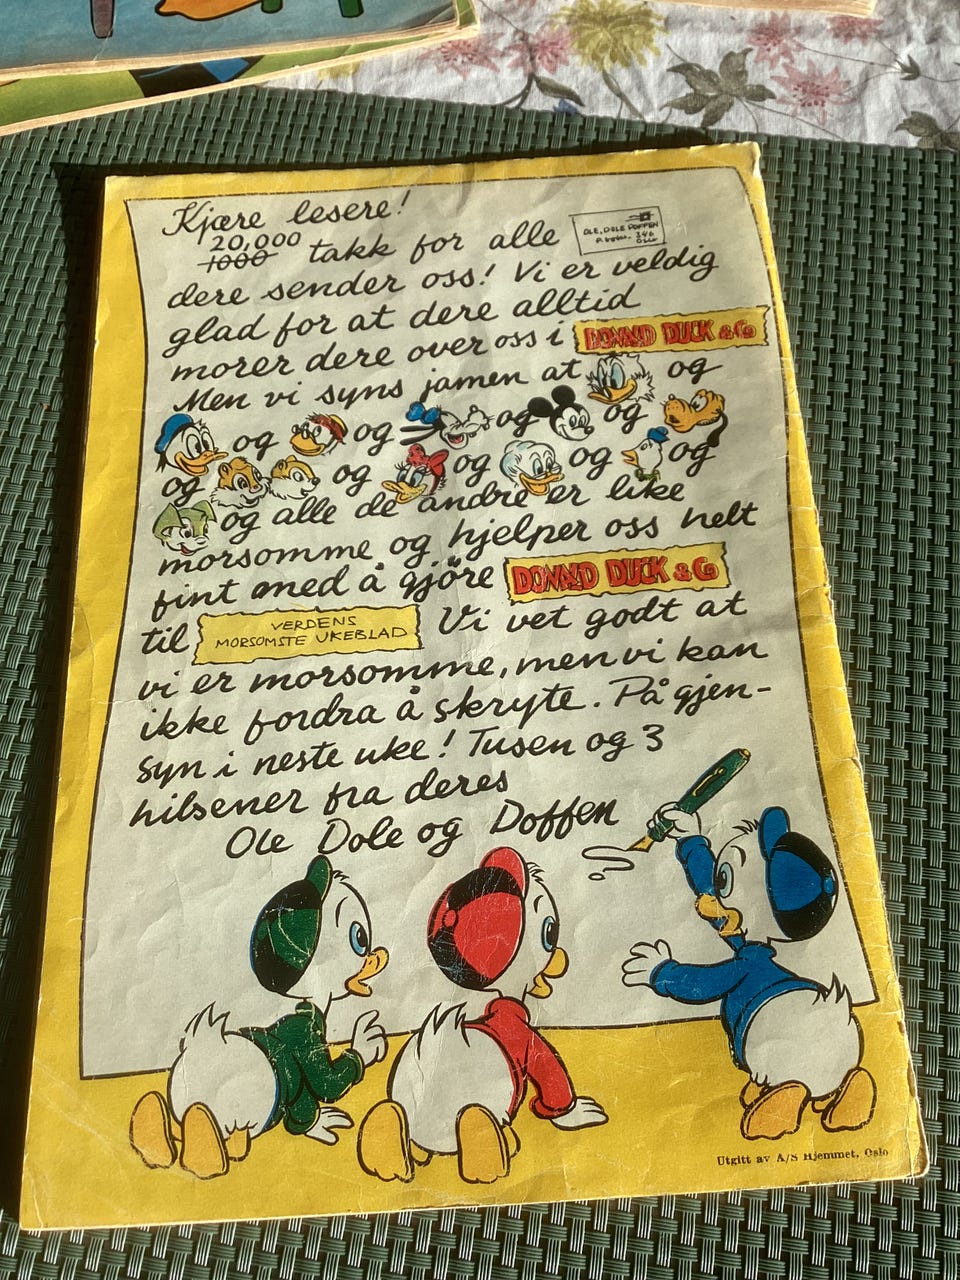 Kjære lesere!
20,000
1000 takk for alle
OLE, DOLE DOFFEN
P.boks. 346
Oslo
dere sender oss! Vi er veldig
glad for at dere alltid
morer dere over oss i DONALD DUCK & Co
Men vi syns jamen at og
og og og og
og og og og og
og alle de andre er like
morsomme og hjelper oss helt
fint med å gjöre DONALD DUCK & Co
til VERDENS
MORSOMSTE UKEBLAD Vi vet godt at
vi er morsomme, men vi kan
ikke fordra å skryte. På gjen-
syn i neste uke! Tusen og 3
hilsener fra deres
Ole Dole og Doffen
Utgitt av A/S Hjemmet, Oslo